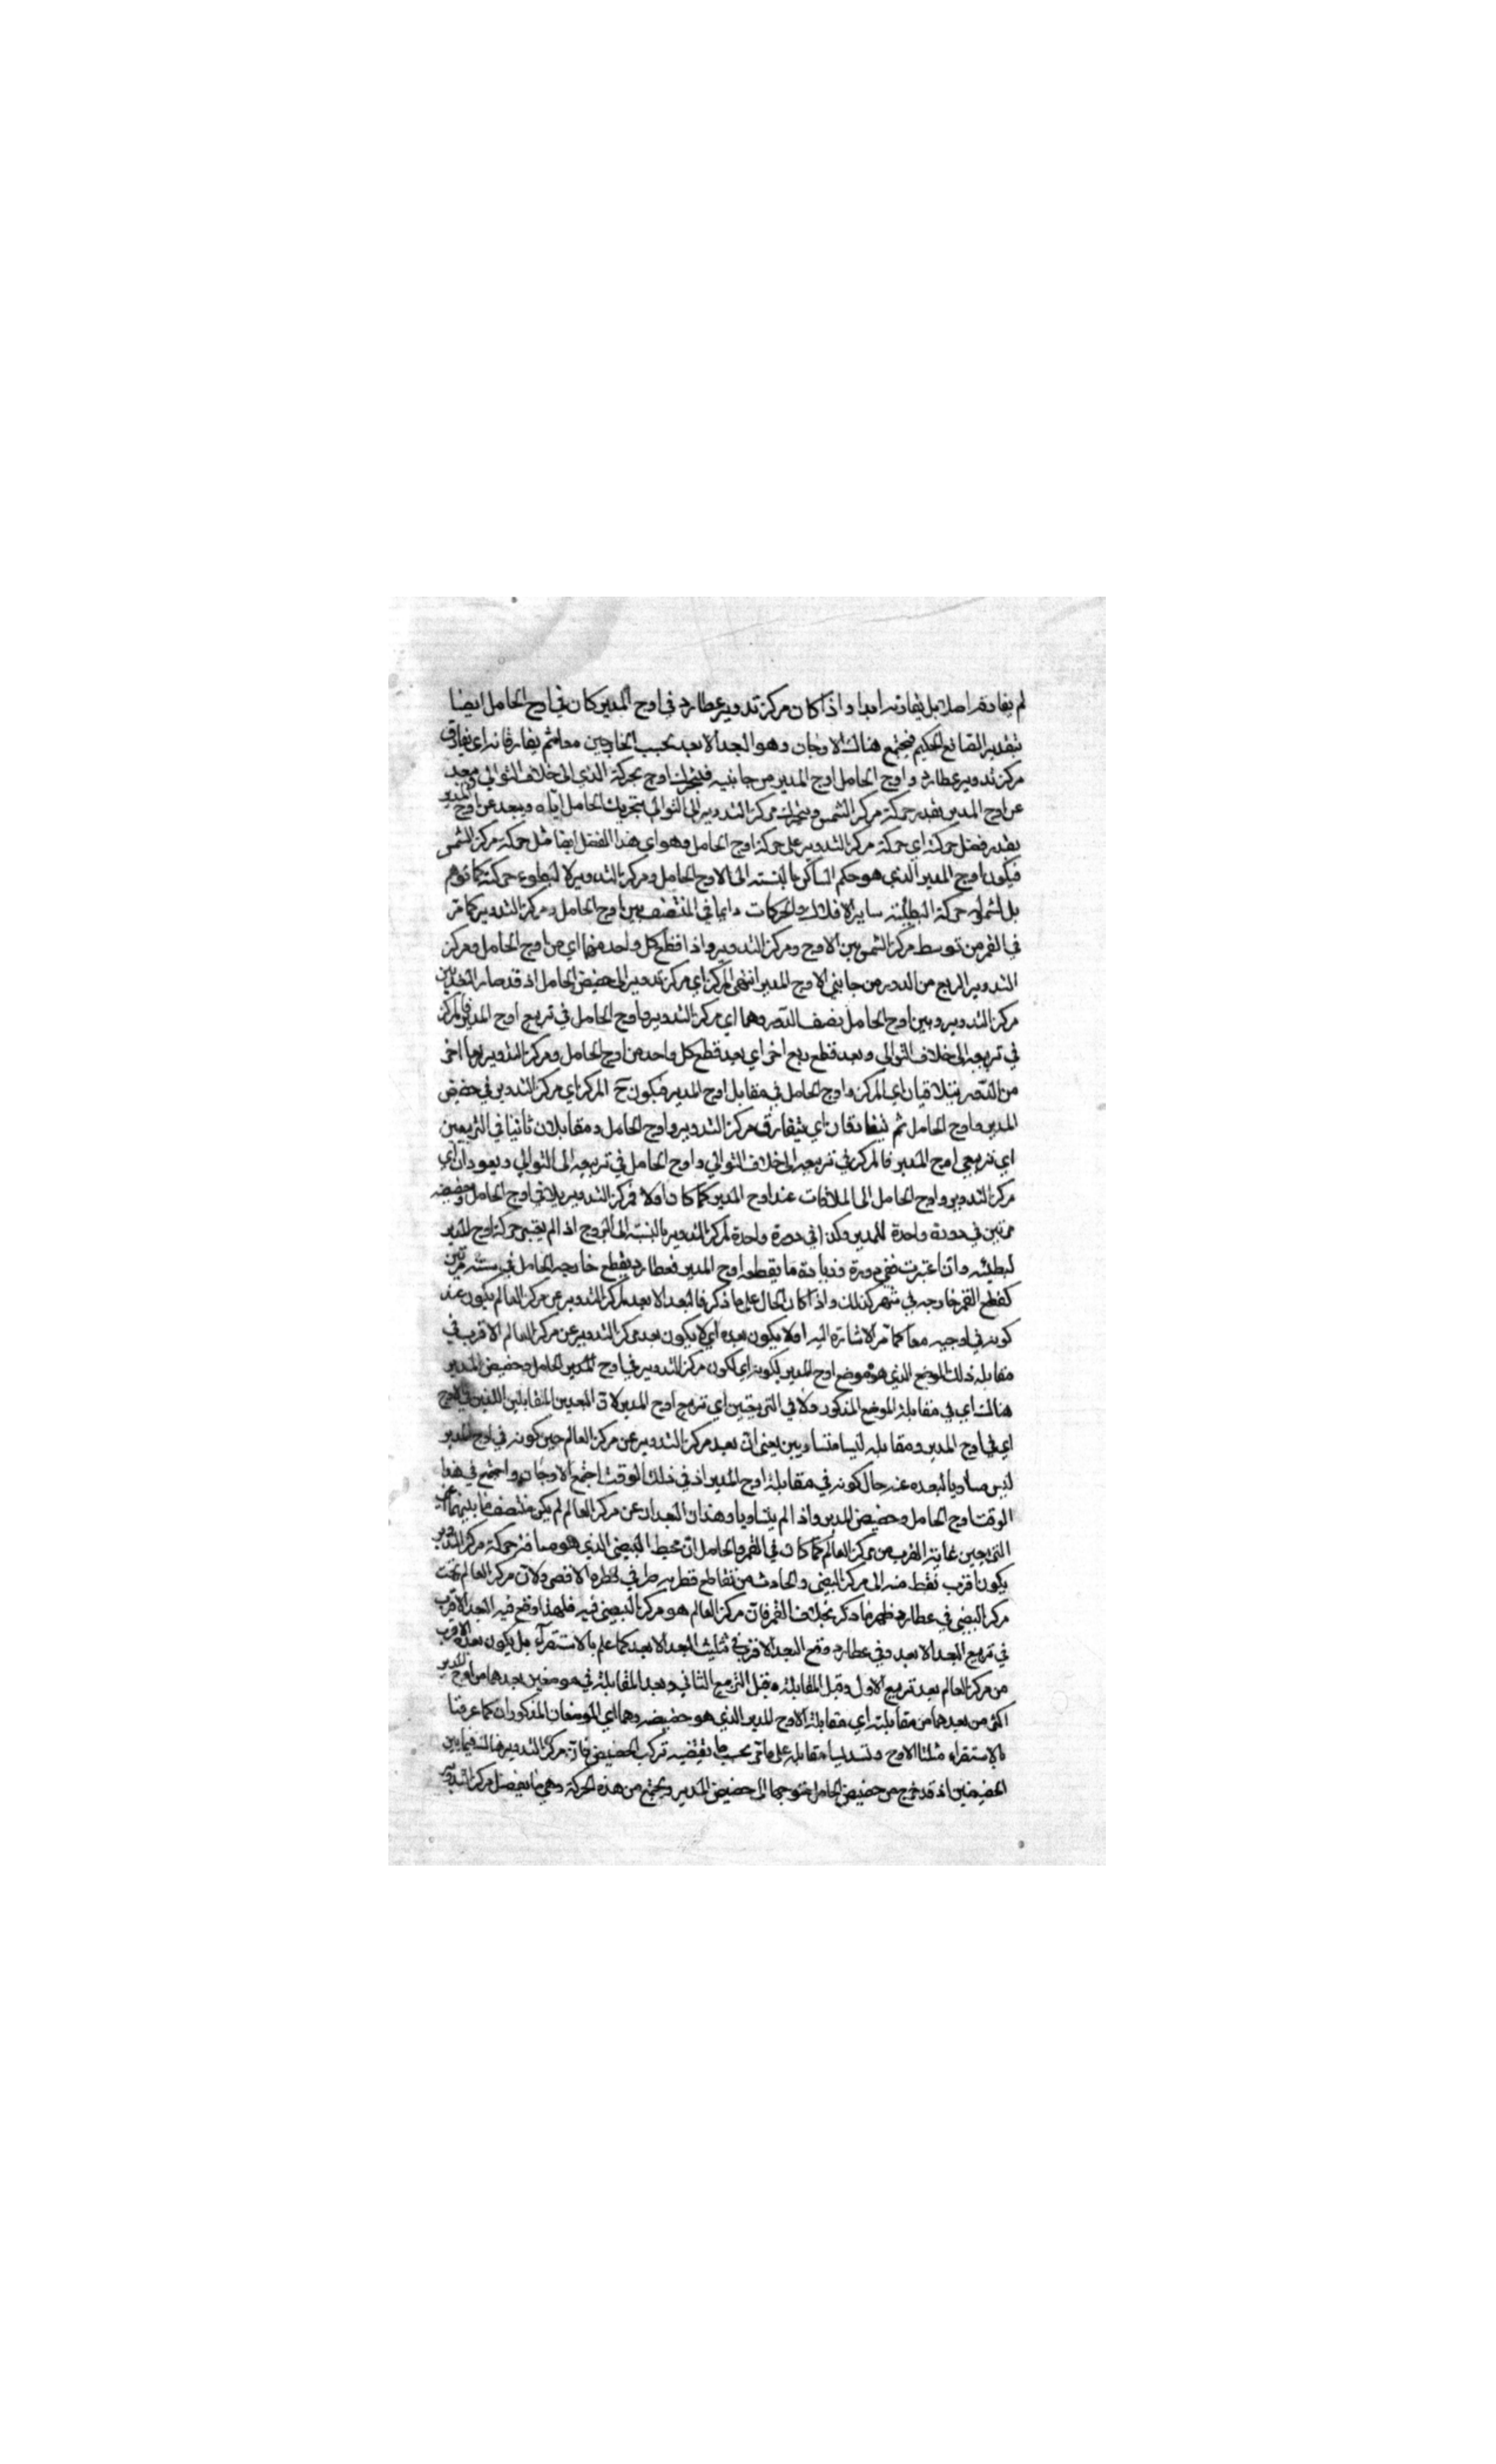 لم يفارقه اصلا بل يفارقه ابدا واذا كان مركز تدوير عطارد في اوج المدير كان في اوج الحامل ايضا
بتقدير الصانع الحكيم فيجتمع هناك الاوجان وهو البعد الابعد بحسب الخارجين معا ثم يفارقانه اي يفارق
مركز تدوير عطارد و اوج الحامل اوج المدير من جانبيه فيتحرك اوج بحركة الذي الى خلاف التوالي ويبعد
عن اوج المدير بقدر حركة مركز الشمس ويتحرك مركز التدوير الى التوالي بتحريك الحامل اياه ويبعد عن اوج المدير
بقدر فضل حركته اي حركة مركز التدوير على حركة اوج الحامل وهو اي هذا الفضل ايضا مثل حركة مركز الشمس
فيكون اوج المدير الذي هو حكم الساكن بالنسبة الى الاوج الحامل ومركز التدوير لا لبطوء حركته كما توهم
بل لشمول حركة البطيئة ساير الافلاك والحركات دايما في المنتصف بين اوج الحامل ومركز التدوير كما مر
في القمر من توسط مركز الشمس بين الاوج ومركز التدوير واذا قطع كل واحد منهما اي من اوج الحامل ومركز
التدوير الربع من الدور من جانبي الاوج المدير انتهى المركز اي مركز تدوير الى حضيض الحامل اذ قد صار البعد بين
مركز التدوير وبين اوج الحامل نصف الدور وهما اي مركز التدوير واوج الحامل في تربيع اوج المدير فالمركز
في تربيعه الى خلاف التوالي وبعد قطع ربع اخر اي بعد قطع كل واحد من اوج الحامل ومركز التدوير ربعا اخر
من الدور يتلاقيان اي المركز واوج الحامل في مقابل اوج المدير فيكون ح المركز اي مركز التدوير في حضيض
المدير واوج الحامل ثم يتفارقان اي يتفارق مركز التدوير واوج الحامل ومقابلان ثانيا في التربيعين
اي تربيعي اوج المدير فالمركز في تربيعه الى خلاف التوالي واوج الحامل في تربيعه الى التوالي ويعودان اي
مركز التدوير واوج الحامل الى الملاقات عند اوج المدير كما كان اولا فمركز التدوير يلاقي اوج الحامل وحضيضه
مرتين في دورة واحدة للمدير وكذا في دورة واحدة لمركز التدوير بالنسبة الى البروج اذا لم يعتبر حركة اوج المدير
لبطئه وان اعتبرت ففي دورة وزيادة ما يقطعه اوج المدير فعطارد يقطع خارجه الحامل في سنة مرتين
كقطع القمر خارجه في شهر كذلك واذا كان الحال على ما ذكر فالبعد الابعد لمركز التدوير عن مركز العالم يكون عند
كونه في اوجيه معا كما مر الاشارة اليه اولا يكون بعده اي لا يكون بعد مركز التدوير عن مركز العالم الاقرب في
مقابلة ذلك الموضع الذي هو موضع اوج المدير لكونه اي لكون مركز التدوير في اوج المدير الحامل وحضيض المدير
هناك اي في مقابلة الموضع المذكور ولا في التربيعين اي تربيع اوج المدير لان البعدين المتقابلين اللذين في اوج
اي في اوج المدير ومقابله ليسا متساويين يعني ان بعد مركز التدوير عن مركز العالم حين كونه في اوج المدير
ليس مساويا لبعده عند حال كونه في مقابلة اوج المدير اذ في ذلك الوقت اجتمع الاوجان واجتمع في هذا
الوقت اوج الحامل وحضيض المدير واذا لم يتساويا وهذان البعدان عن مركز العالم لم يكن منتصف ما بينهما اعني
التربيعين غاية القرب من مركز العالم كما كان في القمر والحامل ان محيط البيضي الذي هو مسافة حركة مركز التدوير
يكون اقرب نقط منه الى مركز البيضي والحادثة من تقاطع قطريه طرفي قطره الاقصر ولان مركز العالم تحت
مركز البيضي في عطارد ظهر ما ذكر بخلاف القمر فان مركز العالم هو مركز البيضي فيه فلهذا وقع فيه البعد الاقرب
في تربيع البعد الابعد وفي عطارد وقع البعد الاقرب في تثليث البعد الابعد كما علم بالاستقراء بل يكون بعده الاقرب
من مركز العالم بعد تربيع الاول وقبل المقابلة وقبل التربيع الثاني وبعد المقابلة في موضعين بعدهما من اوج المدير
اكثر من بعدهما من مقابلته اي مقابلة الاوج للمدير الذي هو حضيضه وهما اي الموضعان المذكوران كما عرفنا
بالاستقراء مثلثا الاوج وتسديسا مقابله على ما مر بحسب ما يقتضيه تركب الحضيض فان مركز التدوير هناك فيما بين
الحضيضين اذ قد خرج من حضيض الحامل متوجها الى حضيض المدير ويجتمع من هذه الحركة وهي ما يفضل مركز التدوير